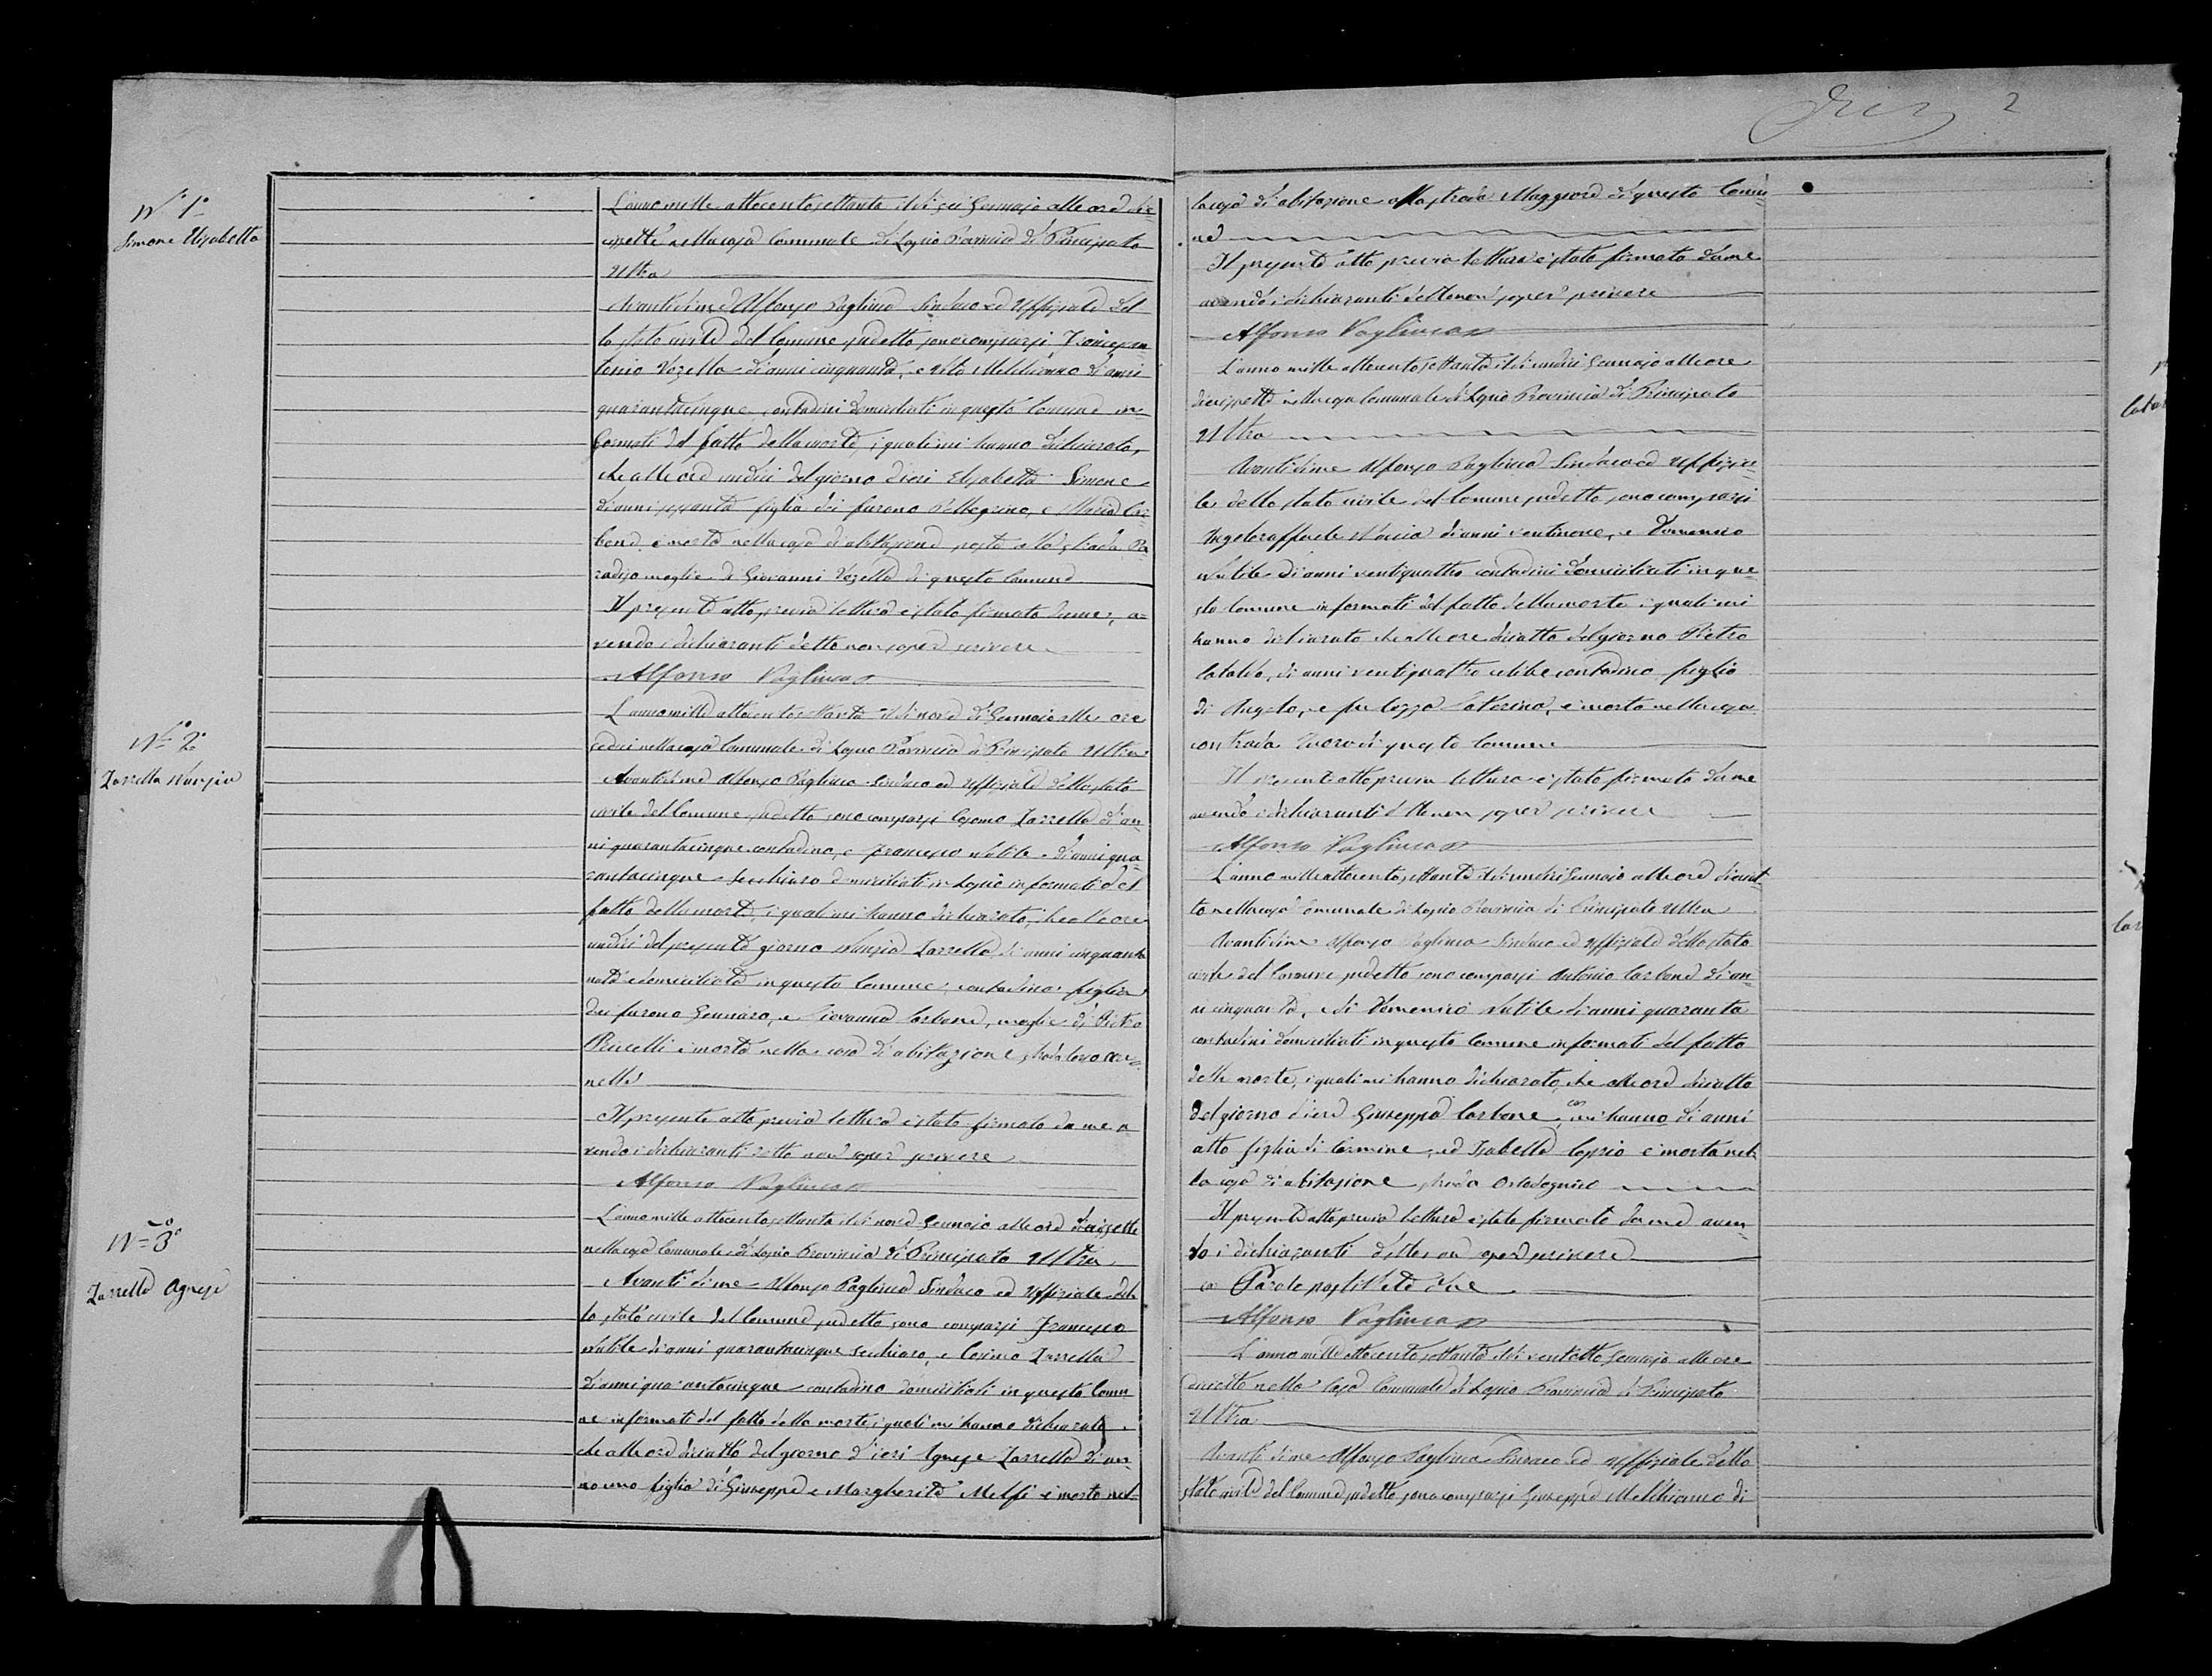 N.° 1°
Simone Elisabetta
L'anno mille ottocentosettanta il dì sei Gennajo alle ore die-
cisette nella casa Comunale di Lapio Provincia di Principato
Ultra
Avanti di me Alfonso Pagliuca Sindaco ed Uffiziale del
lo stato civile del Comune sudetto sono comparsi Francescan
tonio Vozella di anni cinquanta, e Vito Melchionno di anni
quarantacinque contadini domiciliati in questo Comune in-
formati del fatto della morte, i quali mi hanno dichiarato,
che alle ore undici del giorno d'ieri Elisabetta Simone
di anni sessanta figlia dei furono Pellegrino, e Maria Car-
bone, è morta nella casa d'abitazione posta alla strada Pa
radiso moglie di Giovanni Vozella di questo Comune
Il presente atto previa lettura è stato firmato da me, a-
vendo i dichiaranti detto non saper scrivere
Alfonso Pagliuca
N.° 2.°
Zarrella Nunzia
L'anno mille ottocentosettanta il dì nove di Gennaio alle ore
sedici nella casa Comunale di Lapio Provincia di Principato Ultra
Avanti di me Alfonso Pagliuca Sindaco ed Uffiziale dello stato
civile del Comune sudetto sono comparsi Cosomo Zarrella di an-
ni quarantacinque contadino, e Francesco Nutile di anni qua-
rantacinque Secchiaro domiciliati in Lapio informati del
fatto della morte, i quali mi hanno dichiarato, che alle ore
undici del presente giorno Nunzia Zarrella di anni cinquanta
nata e domiciliata in questo Comune, contadina figlia
dei furono Gennaro, e Giovanna Carbone, moglie di Pietro
è morta nella casa di abitazione strada
nelle
Il presente atto previa lettura è stato firmato da me a
vendo i dichiaranti detto non saper scrivere
Alfonso Pagliuca
N.° 3.°
Zarrella Agnese
L'anno mille ottocentosettanta il dì nove Gennajo alle ore diecissette
nella casa Comunale di Lapio Provincia di Principato Ultra
Avanti di me Alfonso Pagliuca Sindaco ed Uffiziale del
lo stato civile del Comune sudetto sono comparsi Francesco
Nutile di anni quarantacinque Secchiaro, e Cosimo Zarrella
di anni quarantacinque contadino domiciliati in questo Comu
ne informati del fatto della morte, i quali mi hanno dichiarato,
che alle ore diciotto del giorno d'ieri Agnese Zarrella di an-
no uno figlia di Giuseppe e Margherita Melfi è morta nel-
2
la casa di abitazione alla strada Maggiore di questo Comu-
ne
Il presente atto previa lettura è stato firmato da me
avendo i dichiaranti detto non saper scrivere
Alfonso Pagliuca
L'anno mille ottocentosettanta il dì undici Gennajo alle ore
diecissette nella casa Comunale di Lapio Provincia di Principato
Ultra
Avanti di me Alfonso Pagliuca Sindaco ed Uffizia-
le dello stato civile del Comune sudetto sono comparsi
Angeloraffaele di anni ventinove, e Domenico
Nutile di anni ventiquattro contadini domiciliati in que-
sto Comune informati del fatto della morte i quali mi
hanno dichiarato che alle ore diciotto del giorno Pietro
Cataldo, di anni ventiquattro celibe contadino figlio
di Angelo, e fu Caterina, è morto nella casa
contrada di questo Comune
Il presente atto previa lettura è stato firmato da me
avendo i dichiaranti detto non saper scrivere
Alfonso Pagliuca
L'anno mille ottocentosettanta il dì undici Gennaio alle ore diciot-
to nella casa Comunale di Lapio Provincia di Principato Ultra
Avanti di me Alfonso Pagliuca Sindaco ed Uffiziale dello stato
civile del Comune sudetto sono comparsi Antonio Carbone di an-
ni cinquanta, e di Domenico Nutile di anni quaranta
contadini domiciliati in questo Comune informati del fatto
della morte, i quali mi hanno dichiarato, che alle ore diciotto
del giorno d'ieri Giuseppa Carbone, mi hanno di anni
otto figlia di Carmine, ed Isabella è morta nel-
la casa di abitazione strada
Il presente atto previa lettura è stato firmato da me aven-
do i dichiaranti detto non saper scrivere
Parole postillate due
Alfonso Pagliuca
L'anno mille ottocento settanta il dì ventotto Gennajo alle ore
diciotto nella Casa Comunale di Lapio Provincia di Principato
Ultra
Avanti di me Alfonso Pagliuca Sindaco ed Uffiziale dello
stato civile del Comune sudetto sono comparsi Giuseppe Melchionno di